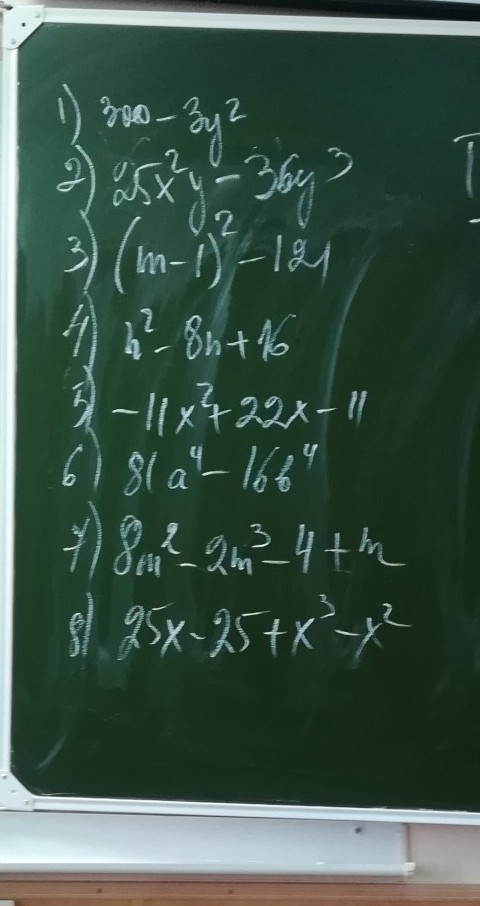 1) 300 - 3y²
2) 25x²y - 36y³
3) (m-1)² - 121
4) n² - 8n + 16
5) -11x² + 22x - 11
6) 81a⁴ - 16b⁴
7) 8m² - 2m³ - 4 + m
8) 25x - 25 + x³ - x²